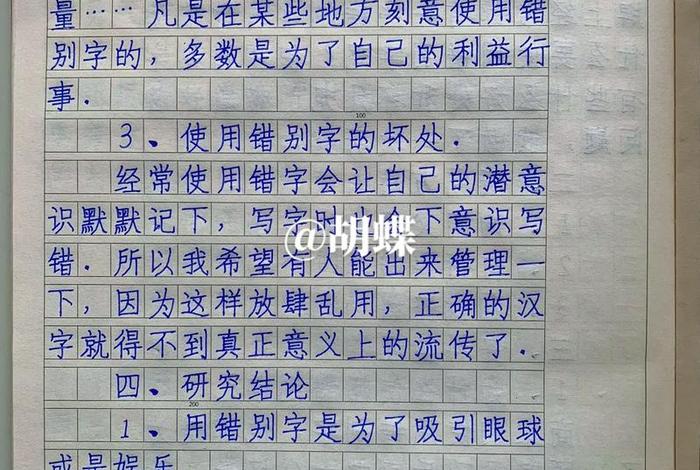 量……凡是在某些地方刻意使用错
别字的，多数是为了自己的利益行
事.
100
3、使用错别字的坏处.
经常使用错字会让自己的潜意
识默默记下，写字时 下意识写
错.所以我希望有人能出来管理一
@胡蝶
下，因为这样放肆乱用，正确的汉
字就得不到真正意义上的流传了.
四、研究结论
200
1、用错别字是为了吸引眼球
或是娱乐